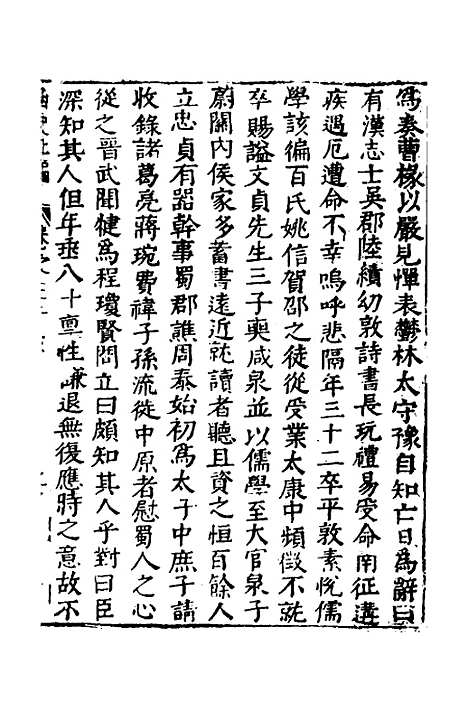 為奏曹掾以嚴見憚表鬱林太守豫自知亡日為辭曰
有漢志士吳郡陸績幼敦詩書長玩禮易受命南征遘
疾遇厄遭命不幸嗚呼悲隔年三十二卒平敦素悅儒
學該徧百氏姚信賀邵之徒從受業太康中頻徵不就
卒賜謚文貞先生三子奭咸泉並以儒學至大官泉子
蔚關內侯家多蓄書遠近就讀者聽且資之恒百餘人
立忠貞有器幹事蜀郡譙周泰始初為太子中庶子請
收錄諸葛亮蔣琬費禕子孫流徙中原者慰蜀人之心
從之晉武聞犍為程瓊賢問立曰頗知其人乎對曰臣
深知其人但年垂八十稟性謙退無復應時之意故不